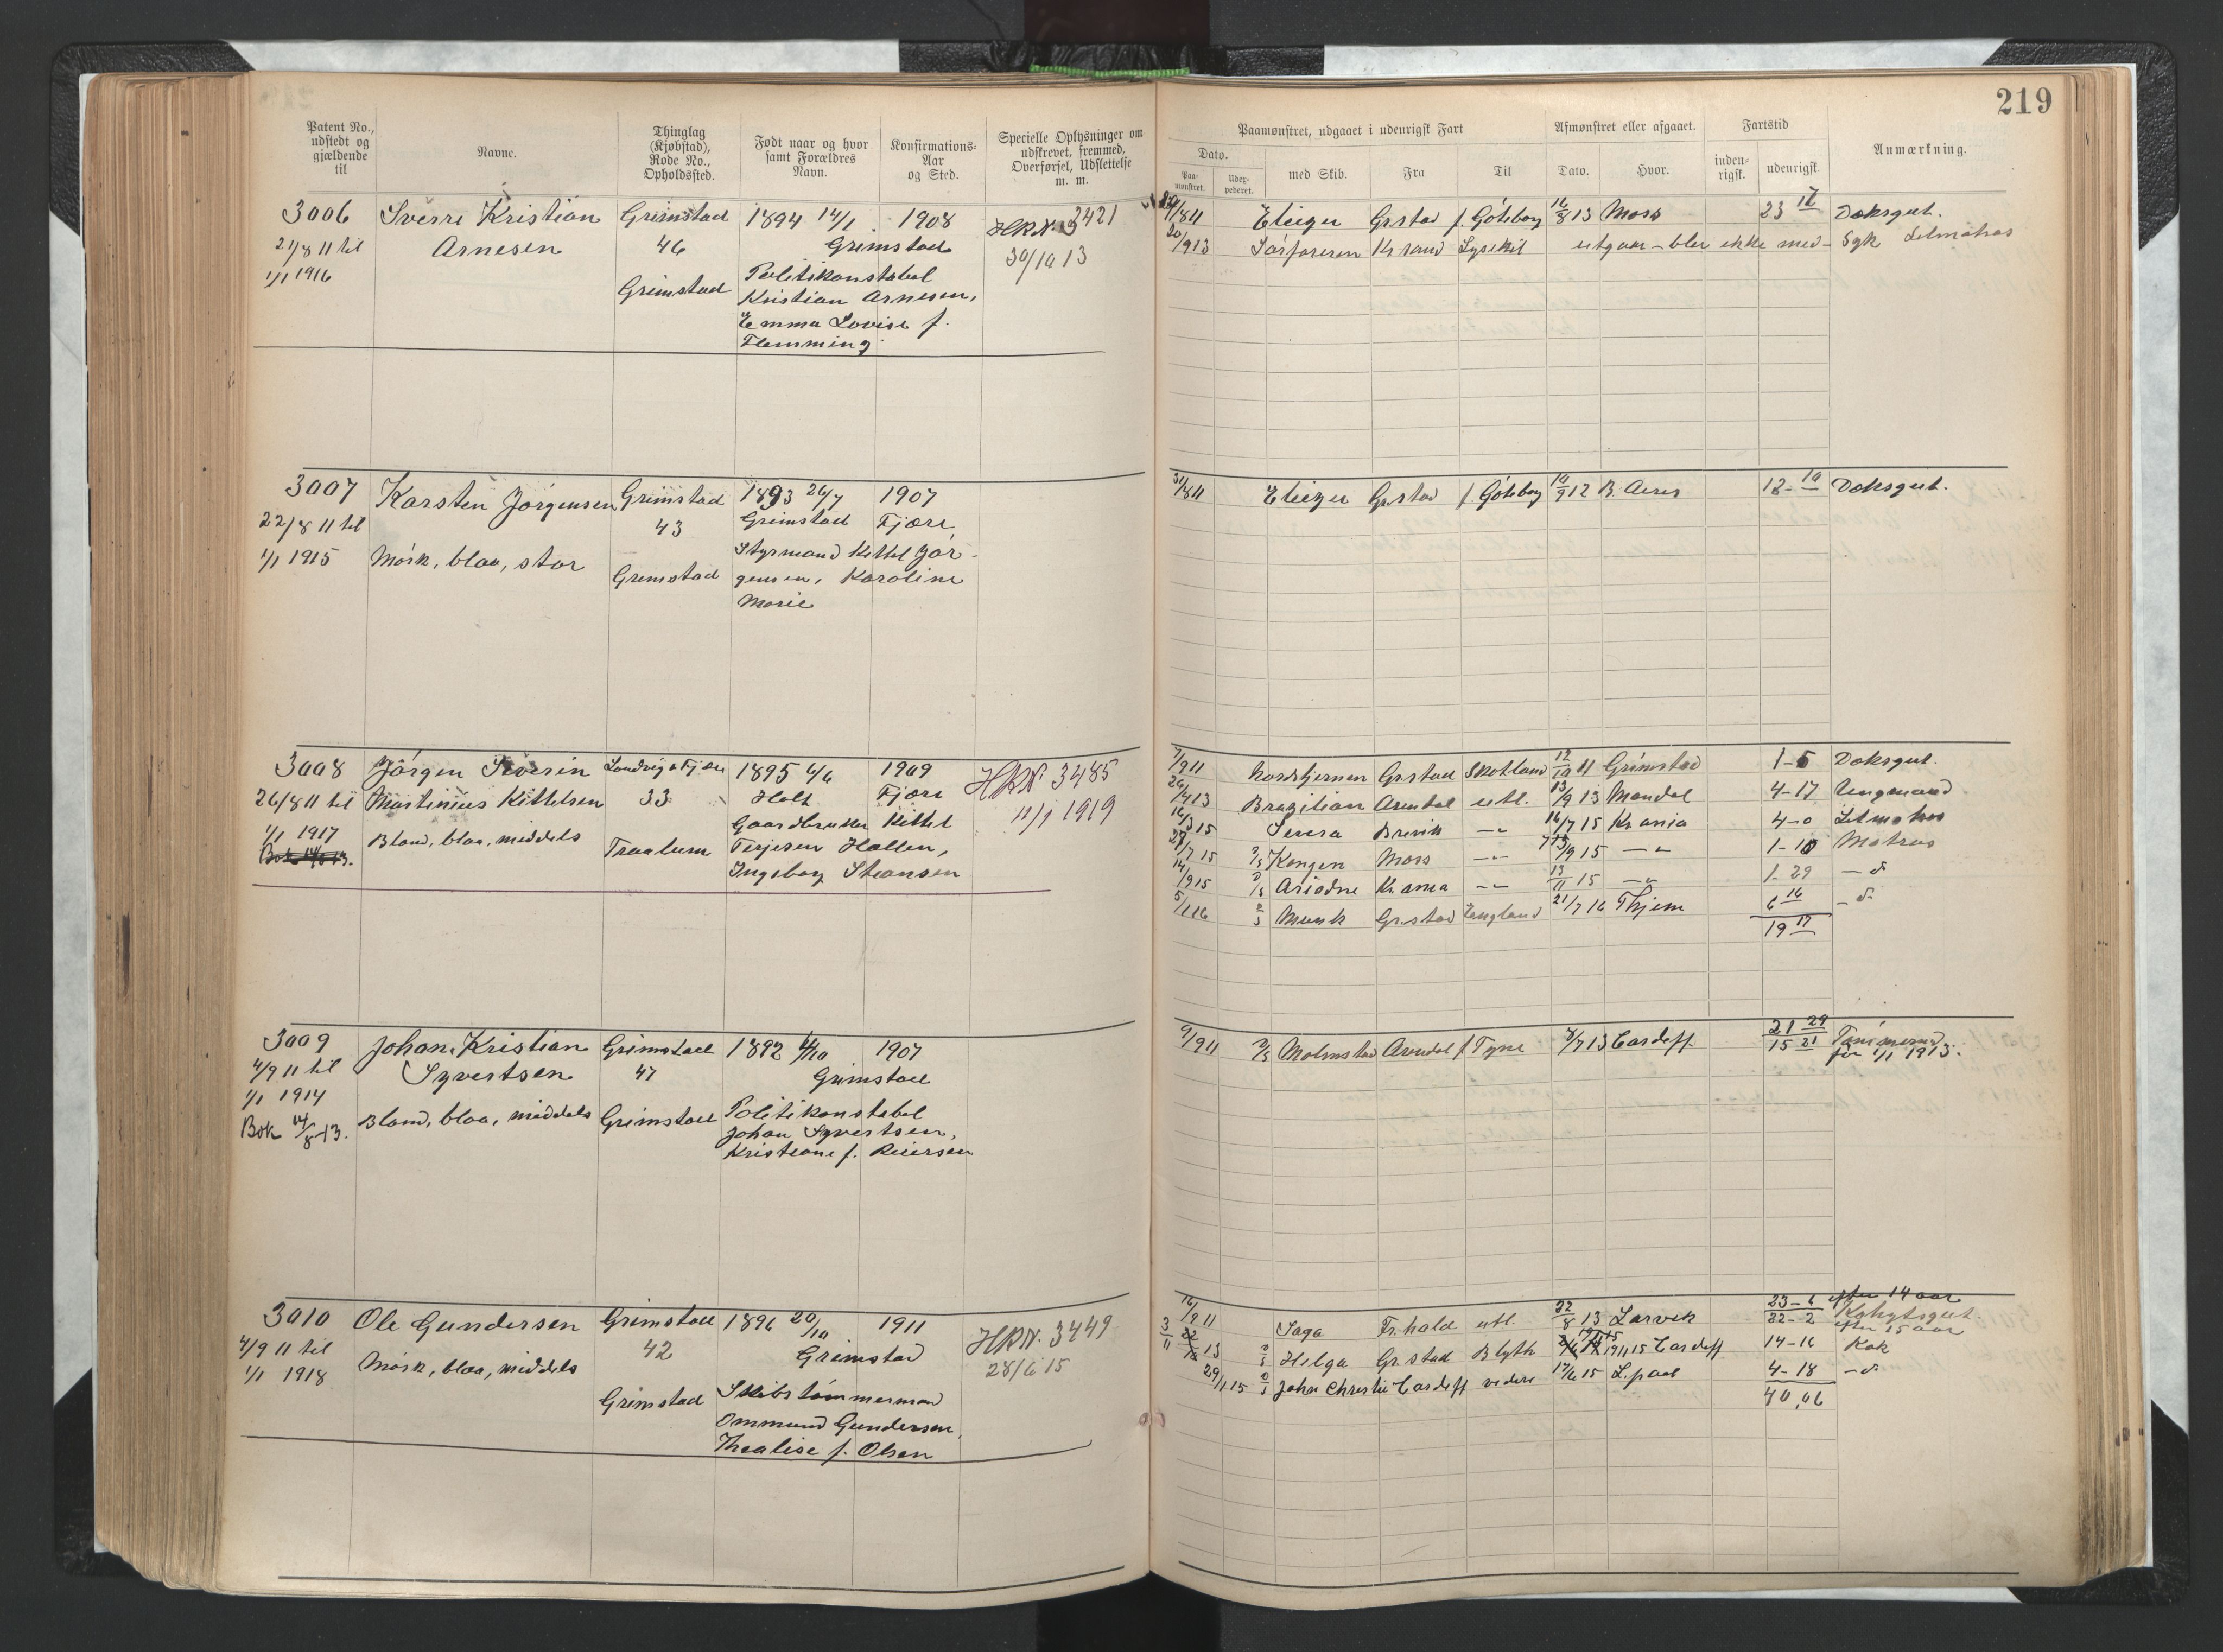 219
Patent No., udstedt og gjældende til
Navne.
Thinglag (Kjøbstad), Rode No., Opholdssted.
Født naar og hvor samt Forældres Navn.
Konfirmations-Aar og Sted.
Specielle Oplysninger om udskrevet, fremmed, Overførsel, Udslettelse m. m.
Paamønstret, udgaaet i udenrigsk Fart
Afmønstret eller afgaaet.
Fartstid
Anmærkning.
Dato.
Paa-mønstret.
Udex-pederet.
med Skib.
Fra
Til
Dato.
Hvor.
inden-rigsk.
udenrigsk.
3006 Sverre Kristian Grimstad 1894 14/1 1908 HRN. 3421
21/8 11 til Arnesen 46 Grimstad 30/10 13
1/1 1916 Politikonstabel
Grimstad Kristian Arnesen,
Emma Lovise f.
Flemming
/8 11 Eliezer Grstad f. Göteborg 16/8 13 Moss 23 Doksgut.
/9 13 Krsand Lysekil utgaar - blev ekke med - Syk Letmatros
3007 Karsten Jörgensen Grimstad 1893 26/7 1907
22/8 11 til 43 Grimstad Fjære
1/1 1915 Mörk, blaa, stor Styrmand Kittel Jör-
Grimstad gensen, Karoline
Marie
31/8 11 Eliezer Grstad f. Göteborg 10/9 12 B. Aires 12-10 Doksgut.
3008 Jörgen Severin Landvig o Fjære 1895 4/6 1909 HRN. 3485
26/8 11 til Martinius Kittelsen 33 Holt Fjære 11/1 1919
1/1 1917 Blond, blaa, middels Gaardbruker Kittel
Traalum Terjesen Hallen,
Ingeborg Steansen
7/9 11 Nordstjernen Grstad Skotland 12/10 11 Grimstad 1-5 Doksgut.
/4 13 Brazilian Arendal utl. 13/9 13 Mandal 4-17 Ungmand
16/3 15 Severa Brevik -"- 16/7 15 Kr.ania 4-0 Letmatros
/7 15 D/S Kongen Moss -"- /9 15 -"- 1-10 Matros
14/9 15 D/S Ariadne Kr.ania -"- 13/11 15 -"- 1-29 -d
5/1 16 D/S Munk Grstad England 21/7 16 Thjem 6 16 -d-
19 17
3009 Johan Kristian Grimstad 1892 /10 1907
4/9 11 til Syvertsen 47 Grimstad
1/1 1914 Politikonstabel
Bok 14/8-13. Blond, blaa, middels Grimstad Johan Syvertsen,
Kristiane f. Reiersen
9/9 11 D/S Molmstad Arendal f. Tyne 8/7 13 Cardiff 21 29
15 21 för 1/1 1913.
3010 Ole Gundersen Grimstad 1896 20/10 1911 HRN. 3449
4/9 11 til 42 Grimstad 28/6 15
1/1 1918 Mörk, blaa, middels Skibstömmermand
Grimstad Ommund Gundersen,
Thealise f. Olsen
efter 14 aar
16/9 11 Saga Fr.hald utl. 22/8 13 Larvik 23-6
22-2 Kahytsgut
efter 15 aar
3/11 13 D/S Helga Grstad Blyth 19/1 15 Cardiff 14-16 Kok
29/1 15 D/S John Christie Cardiff videre 17/6 15 L.pool 4-18 -d
40,06